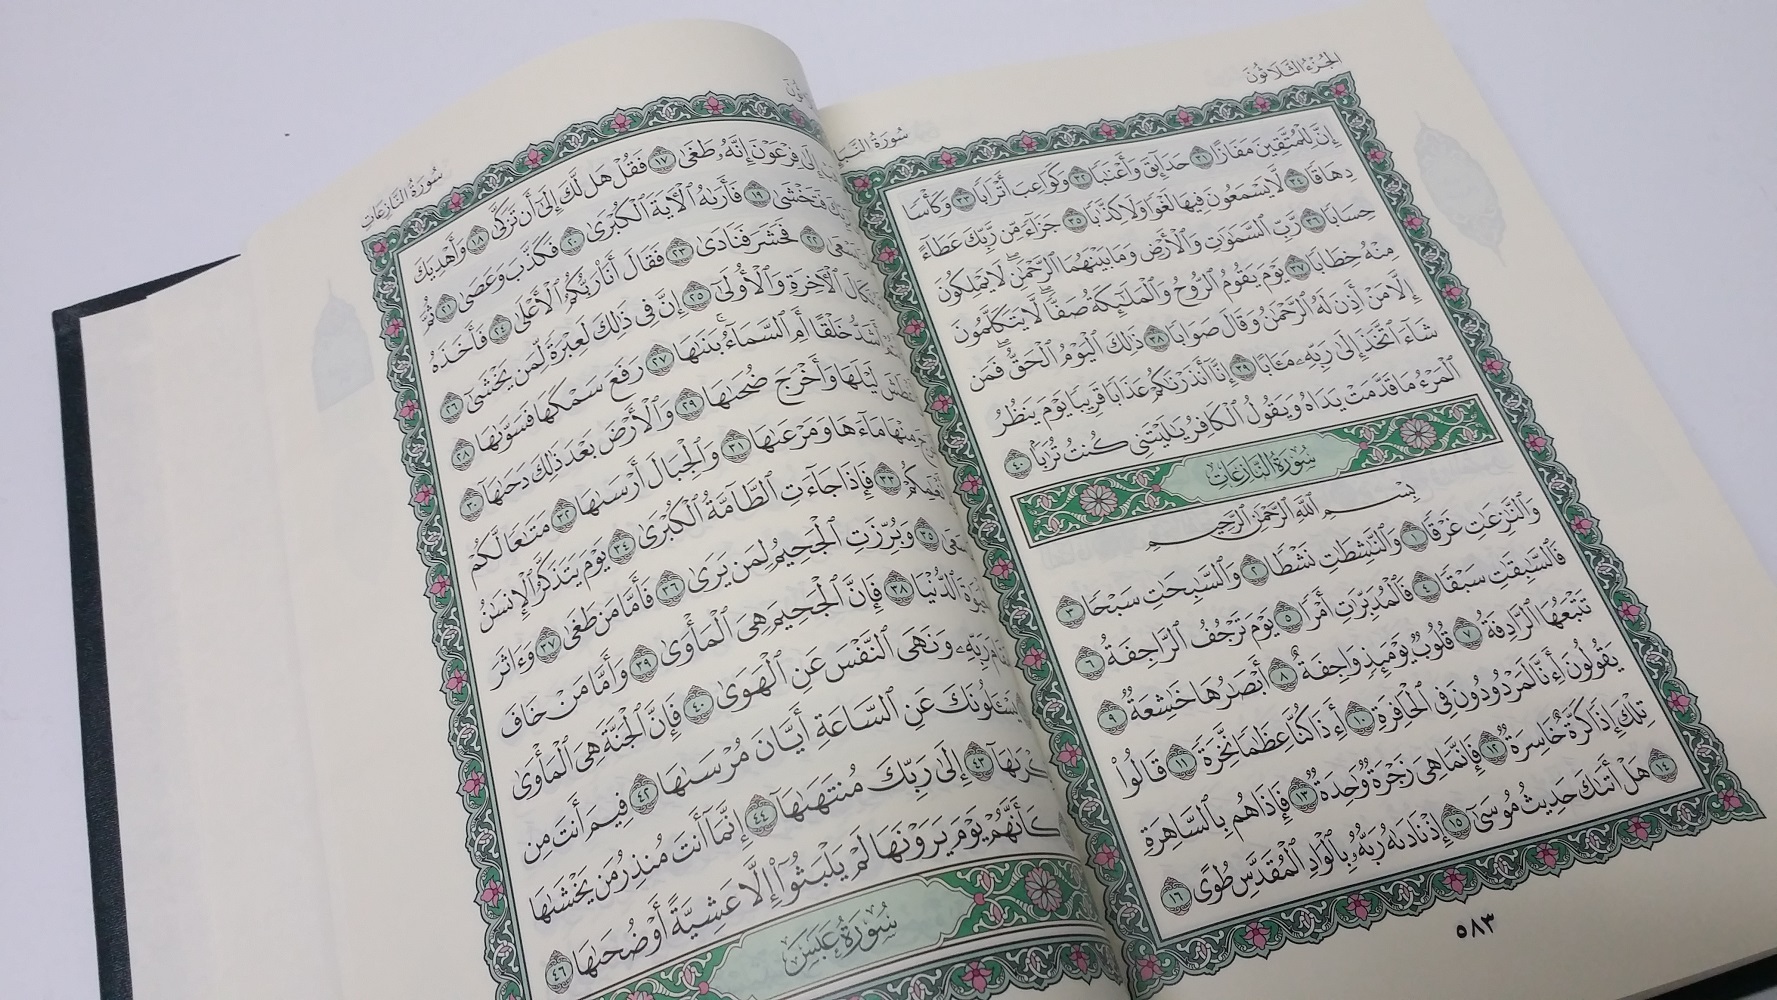 الجزء الثلاثون
سورة النبإ
إِنَّ لِلْمُتَّقِينَ مَفَازًا ٣١ حَدَآئِقَ وَأَعْنَٰبًا ٣٢ وَكَوَاعِبَ أَتْرَابًا ٣٣ وَكَأْسًا
دِهَاقًا ٣٤ لَّا يَسْمَعُونَ فِيهَا لَغْوًا وَلَا كِذَّٰبًا ٣٥ جَزَآءً مِّن رَّبِّكَ عَطَآءً
حِسَابًا ٣٦ رَّبِّ ٱلسَّمَٰوَٰتِ وَٱلْأَرْضِ وَمَا بَيْنَهُمَا ٱلرَّحْمَٰنِۖ لَا يَمْلِكُونَ
مِنْهُ خِطَابًا ٣٧ يَوْمَ يَقُومُ ٱلرُّوحُ وَٱلْمَلَٰٓئِكَةُ صَفًّاۖ لَّا يَتَكَلَّمُونَ
إِلَّا مَنْ أَذِنَ لَهُ ٱلرَّحْمَٰنُ وَقَالَ صَوَابًا ٣٨ ذَٰلِكَ ٱلْيَوْمُ ٱلْحَقُّۖ فَمَن
شَآءَ ٱتَّخَذَ إِلَىٰ رَبِّهِۦ مَـَٔابًا ٣٩ إِنَّآ أَنذَرْنَٰكُمْ عَذَابًا قَرِيبًا يَوْمَ يَنظُرُ
ٱلْمَرْءُ مَا قَدَّمَتْ يَدَاهُ وَيَقُولُ ٱلْكَافِرُ يَٰلَيْتَنِى كُنتُ تُرَٰبًۢا ٤٠
سورة النازعات
بِسْمِ ٱللَّهِ ٱلرَّحْمَٰنِ ٱلرَّحِيمِ
وَٱلنَّٰزِعَٰتِ غَرْقًا ١ وَٱلنَّٰشِطَٰتِ نَشْطًا ٢ وَٱلسَّٰبِحَٰتِ سَبْحًا ٣
فَٱلسَّٰبِقَٰتِ سَبْقًا ٤ فَٱلْمُدَبِّرَٰتِ أَمْرًا ٥ يَوْمَ تَرْجُفُ ٱلرَّاجِفَةُ ٦
تَتْبَعُهَا ٱلرَّادِفَةُ ٧ قُلُوبٌ يَوْمَئِذٍ وَاجِفَةٌ ٨ أَبْصَٰرُهَا خَٰشِعَةٌ ٩
يَقُولُونَ أَءِنَّا لَمَرْدُودُونَ فِى ٱلْحَافِرَةِ ١٠ أَءِذَا كُنَّا عِظَٰمًا نَّخِرَةً ١١ قَالُوا۟
تِلْكَ إِذًا كَرَّةٌ خَاسِرَةٌ ١٢ فَإِنَّمَا هِىَ زَجْرَةٌ وَٰحِدَةٌ ١٣ فَإِذَا هُم بِٱلسَّاهِرَةِ
١٤ هَلْ أَتَىٰكَ حَدِيثُ مُوسَىٰٓ ١٥ إِذْ نَادَىٰهُ رَبُّهُۥ بِٱلْوَادِ ٱلْمُقَدَّسِ طُوًى ١٦
٥٨٣
سورة النازعات
إِلَىٰ فِرْعَوْنَ إِنَّهُۥ طَغَىٰ ١٧ فَقُلْ هَل لَّكَ إِلَىٰٓ أَن تَزَكَّىٰ ١٨ وَأَهْدِيَكَ
فَتَخْشَىٰ ١٩ فَأَرَىٰهُ ٱلْـَٔايَةَ ٱلْكُبْرَىٰ ٢٠ فَكَذَّبَ وَعَصَىٰ ٢١ ثُمَّ
يَسْعَىٰ ٢٢ فَحَشَرَ فَنَادَىٰ ٢٣ فَقَالَ أَنَا۠ رَبُّكُمُ ٱلْأَعْلَىٰ ٢٤ فَأَخَذَهُ
نَكَالَ ٱلْـَٔاخِرَةِ وَٱلْأُولَىٰٓ ٢٥ إِنَّ فِى ذَٰلِكَ لَعِبْرَةً لِّمَن يَخْشَىٰٓ ٢٦
أَشَدُّ خَلْقًا أَمِ ٱلسَّمَآءُۚ بَنَىٰهَا ٢٧ رَفَعَ سَمْكَهَا فَسَوَّىٰهَا ٢٨
لَيْلَهَا وَأَخْرَجَ ضُحَىٰهَا ٢٩ وَٱلْأَرْضَ بَعْدَ ذَٰلِكَ دَحَىٰهَآ ٣٠
مِنْهَا مَآءَهَا وَمَرْعَىٰهَا ٣١ وَٱلْجِبَالَ أَرْسَىٰهَا ٣٢ مَتَٰعًا لَّكُمْ
٣٣ فَإِذَا جَآءَتِ ٱلطَّآمَّةُ ٱلْكُبْرَىٰ ٣٤ يَوْمَ يَتَذَكَّرُ ٱلْإِنسَٰنُ
٣٥ وَبُرِّزَتِ ٱلْجَحِيمُ لِمَن يَرَىٰ ٣٦ فَأَمَّا مَن طَغَىٰ ٣٧ وَءَاثَرَ
ٱلدُّنْيَا ٣٨ فَإِنَّ ٱلْجَحِيمَ هِىَ ٱلْمَأْوَىٰ ٣٩ وَأَمَّا مَنْ خَافَ
رَبِّهِۦ وَنَهَى ٱلنَّفْسَ عَنِ ٱلْهَوَىٰ ٤٠ فَإِنَّ ٱلْجَنَّةَ هِىَ ٱلْمَأْوَىٰ
يَسْـَٔلُونَكَ عَنِ ٱلسَّاعَةِ أَيَّانَ مُرْسَىٰهَا ٤٢ فِيمَ أَنتَ مِن
ذِكْرَىٰهَآ ٤٣ إِلَىٰ رَبِّكَ مُنتَهَىٰهَآ ٤٤ إِنَّمَآ أَنتَ مُنذِرُ مَن يَخْشَىٰهَا
كَأَنَّهُمْ يَوْمَ يَرَوْنَهَا لَمْ يَلْبَثُوٓا۟ إِلَّا عَشِيَّةً أَوْ ضُحَىٰهَا ٤٦
سورة عبس